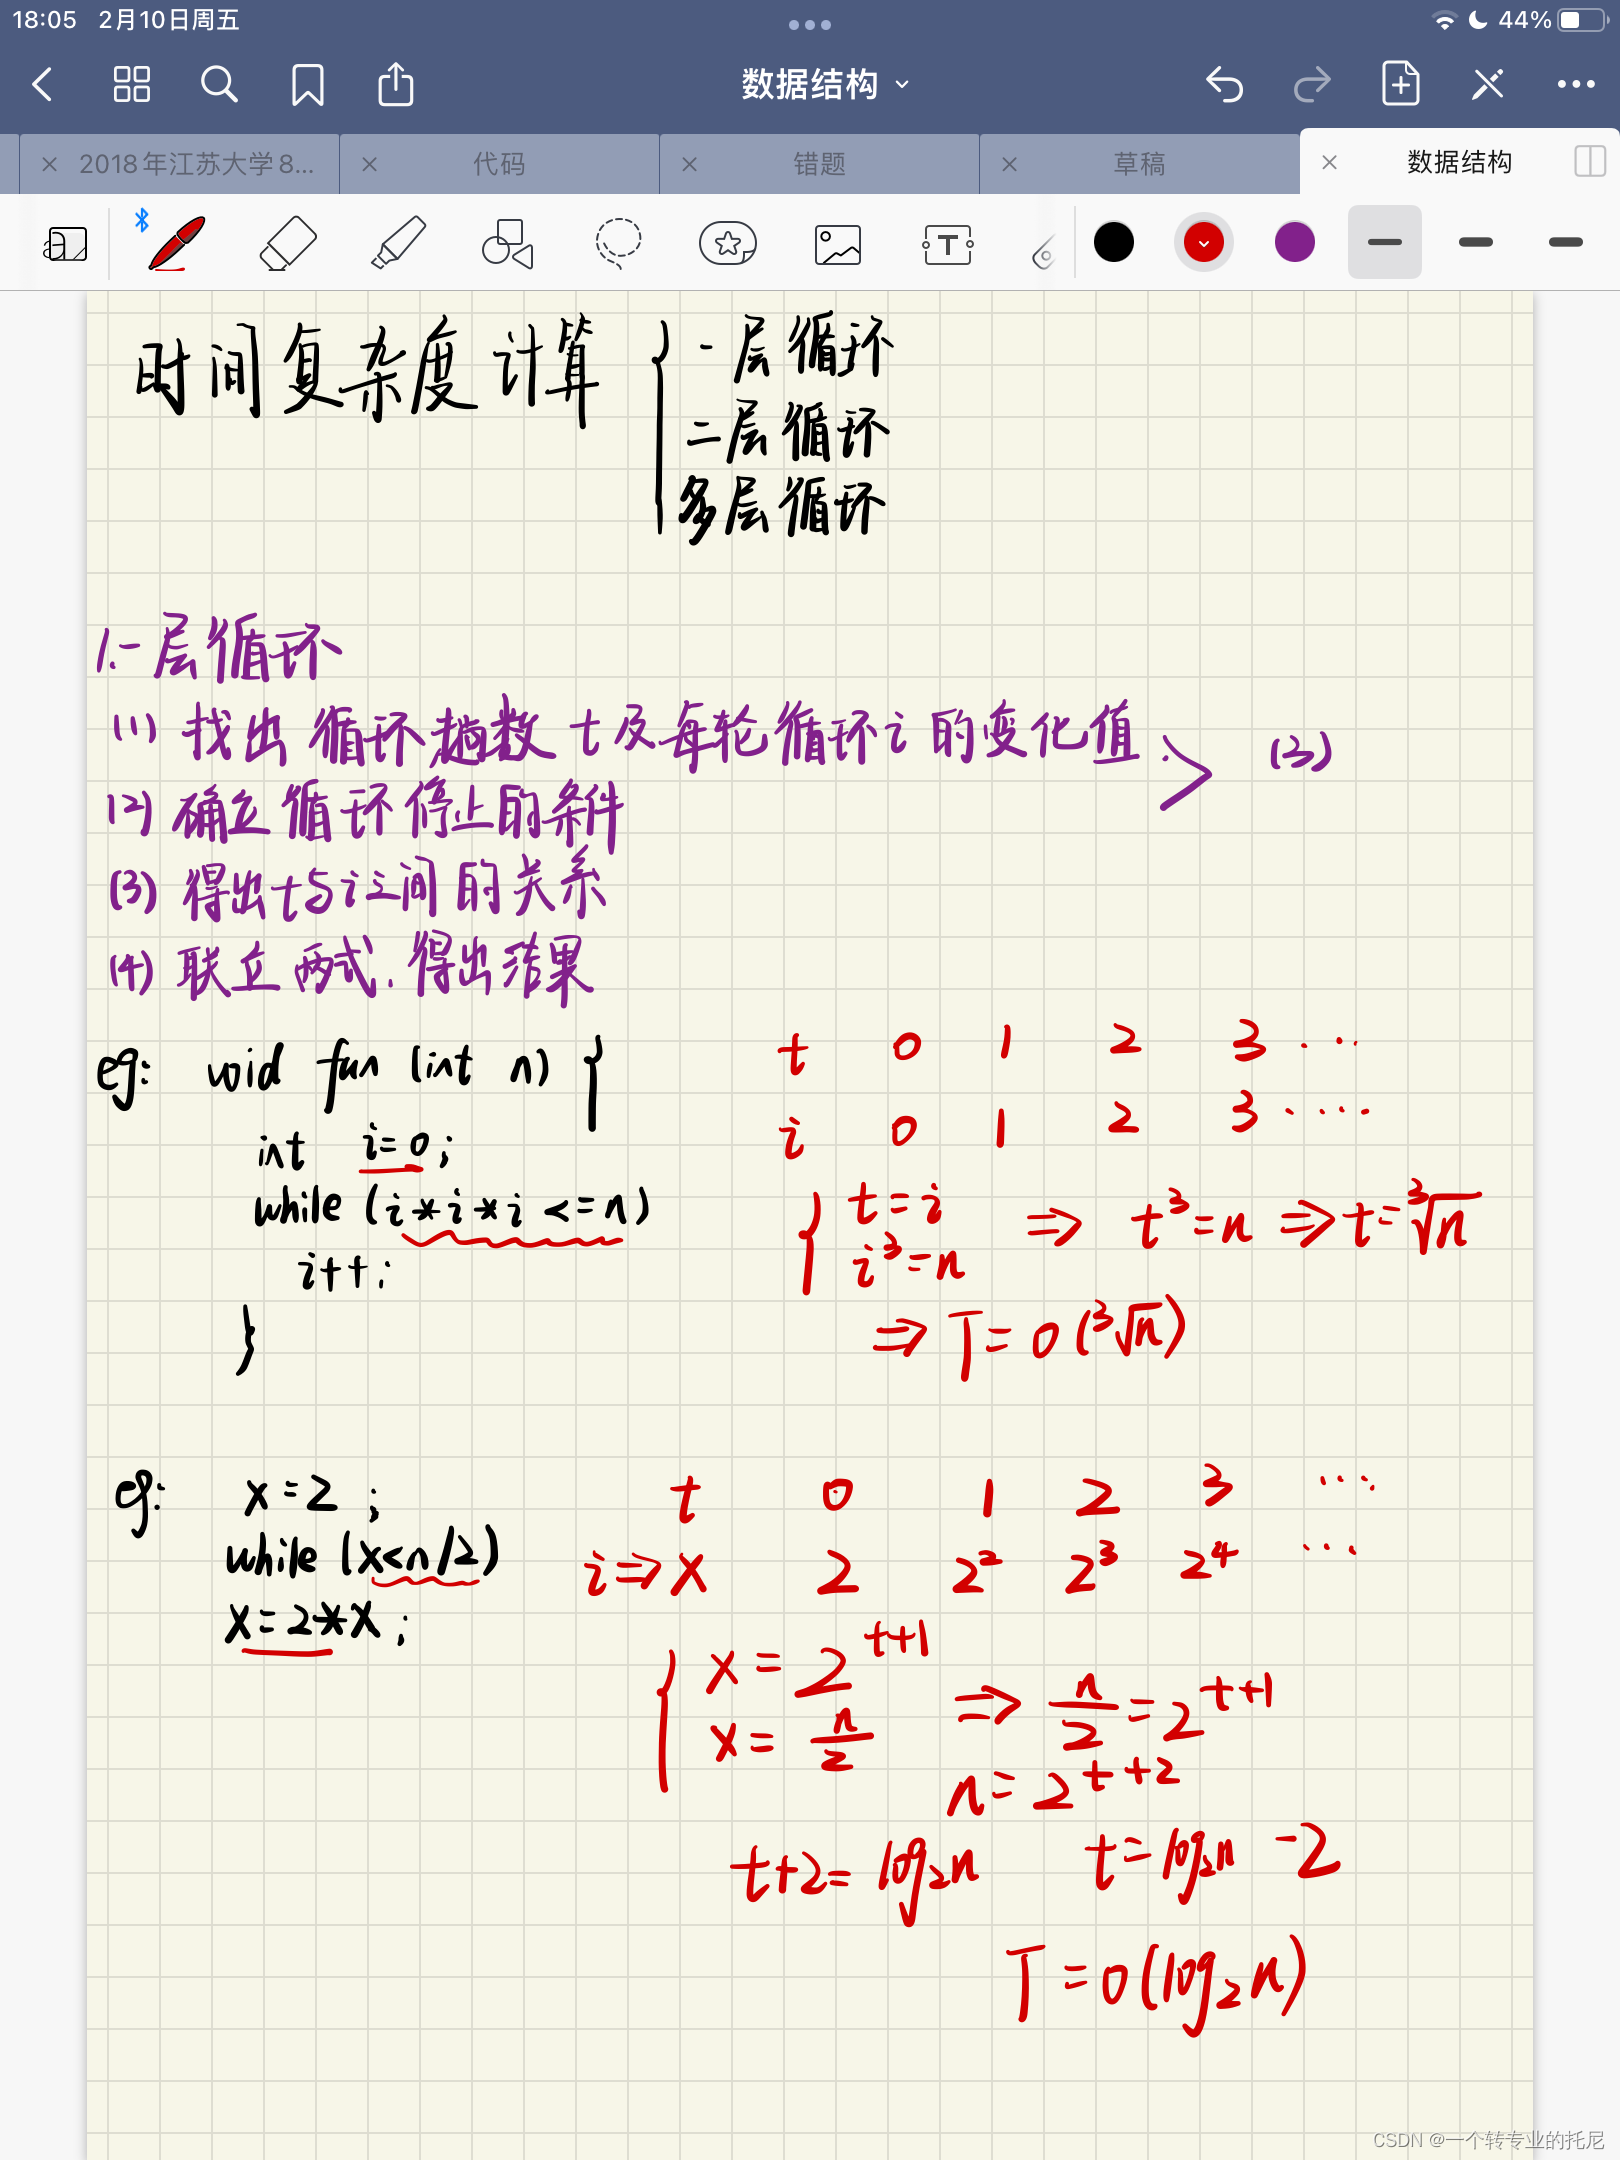 18:05 2月10日周五 44%
数据结构
2018年江苏大学8... 代码 错题 草稿 数据结构
时间复杂度计算 { 一层循环
二层循环
多层循环
1.一层循环
(1) 找出循环趟数t及每轮循环i的变化值 > (3)
(2) 确立循环停止的条件
(3) 得出t与i之间的关系
(4) 联立两式,得出结果
eg: void fun (int n) {
int i=0;
while (i*i*i <=n)
i++;
}
t 0 1 2 3 ...
i 0 1 2 3 ....
{ t=i
i³=n ⇒ t³=n ⇒ t=³√n
⇒ T=O(³√n)
eg: x=2;
while (x<n/2)
x=2*x;
t 0 1 2 3 ...
i⇒x 2 2² 2³ 2⁴ ...
{ x=2^{t+1}
x=n/2 ⇒ n/2=2^{t+1}
n=2^{t+2}
t+2=log₂n t=log₂n -2
T=O(log₂n)
CSDN @一个转专业的托尼